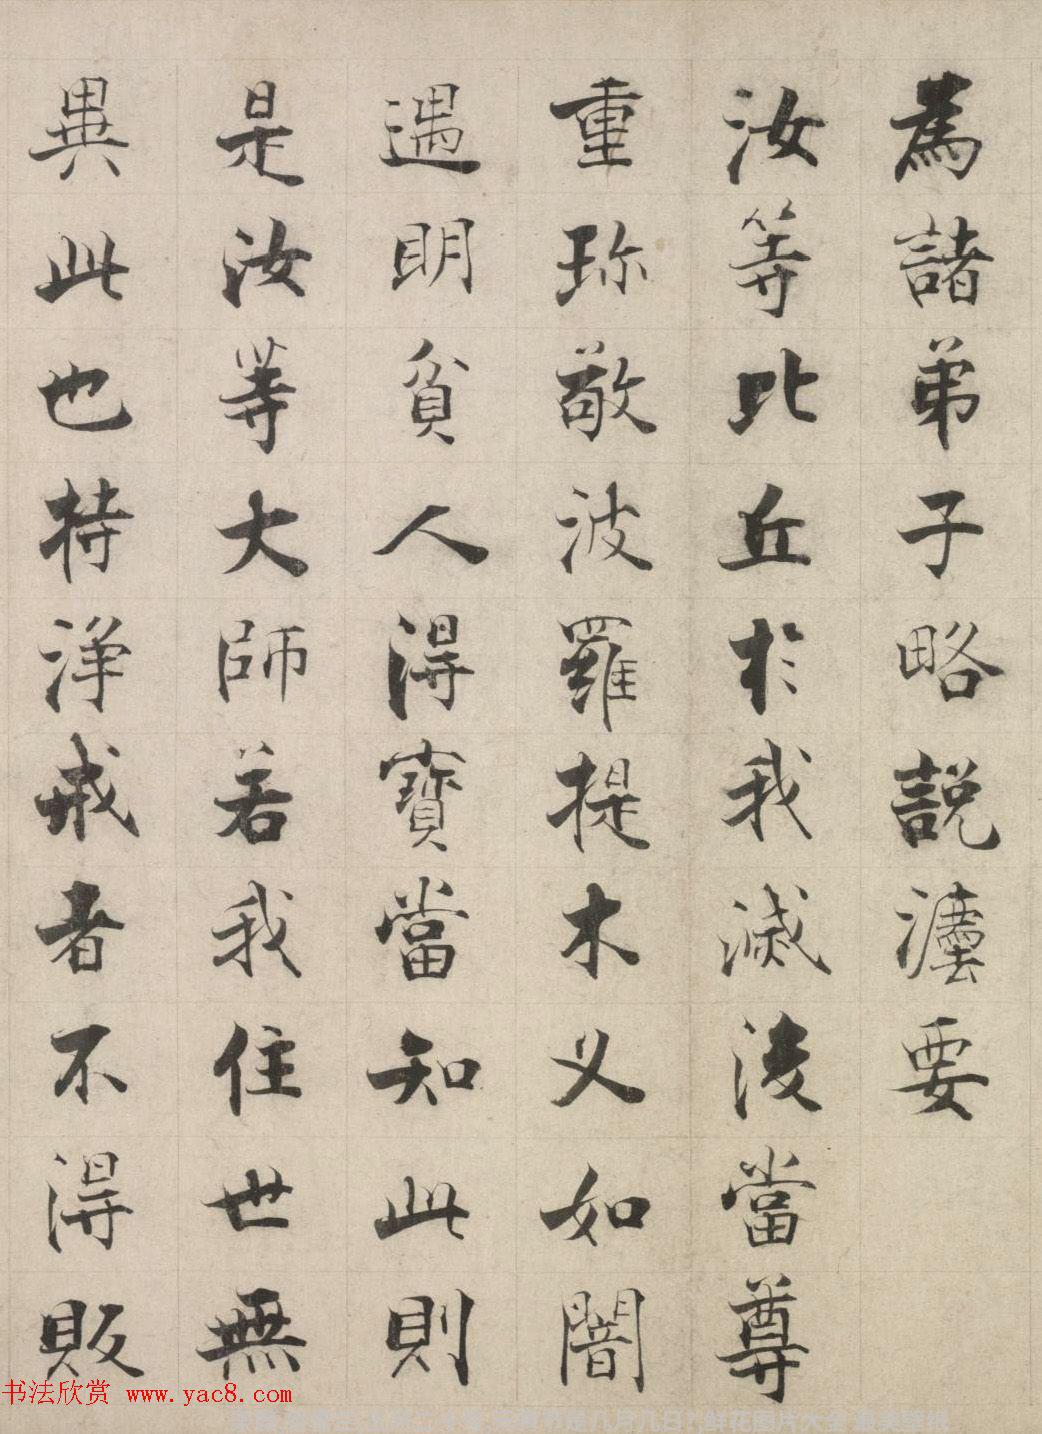 為諸弟子略説灋要
汝等比丘於我滅後當尊
重珎敬波羅提木义如闇
遇明貧人得寶當知此則
是汝等大師若我住世無
異此也持淨戒者不得販
书法欣赏 www.yac8.com